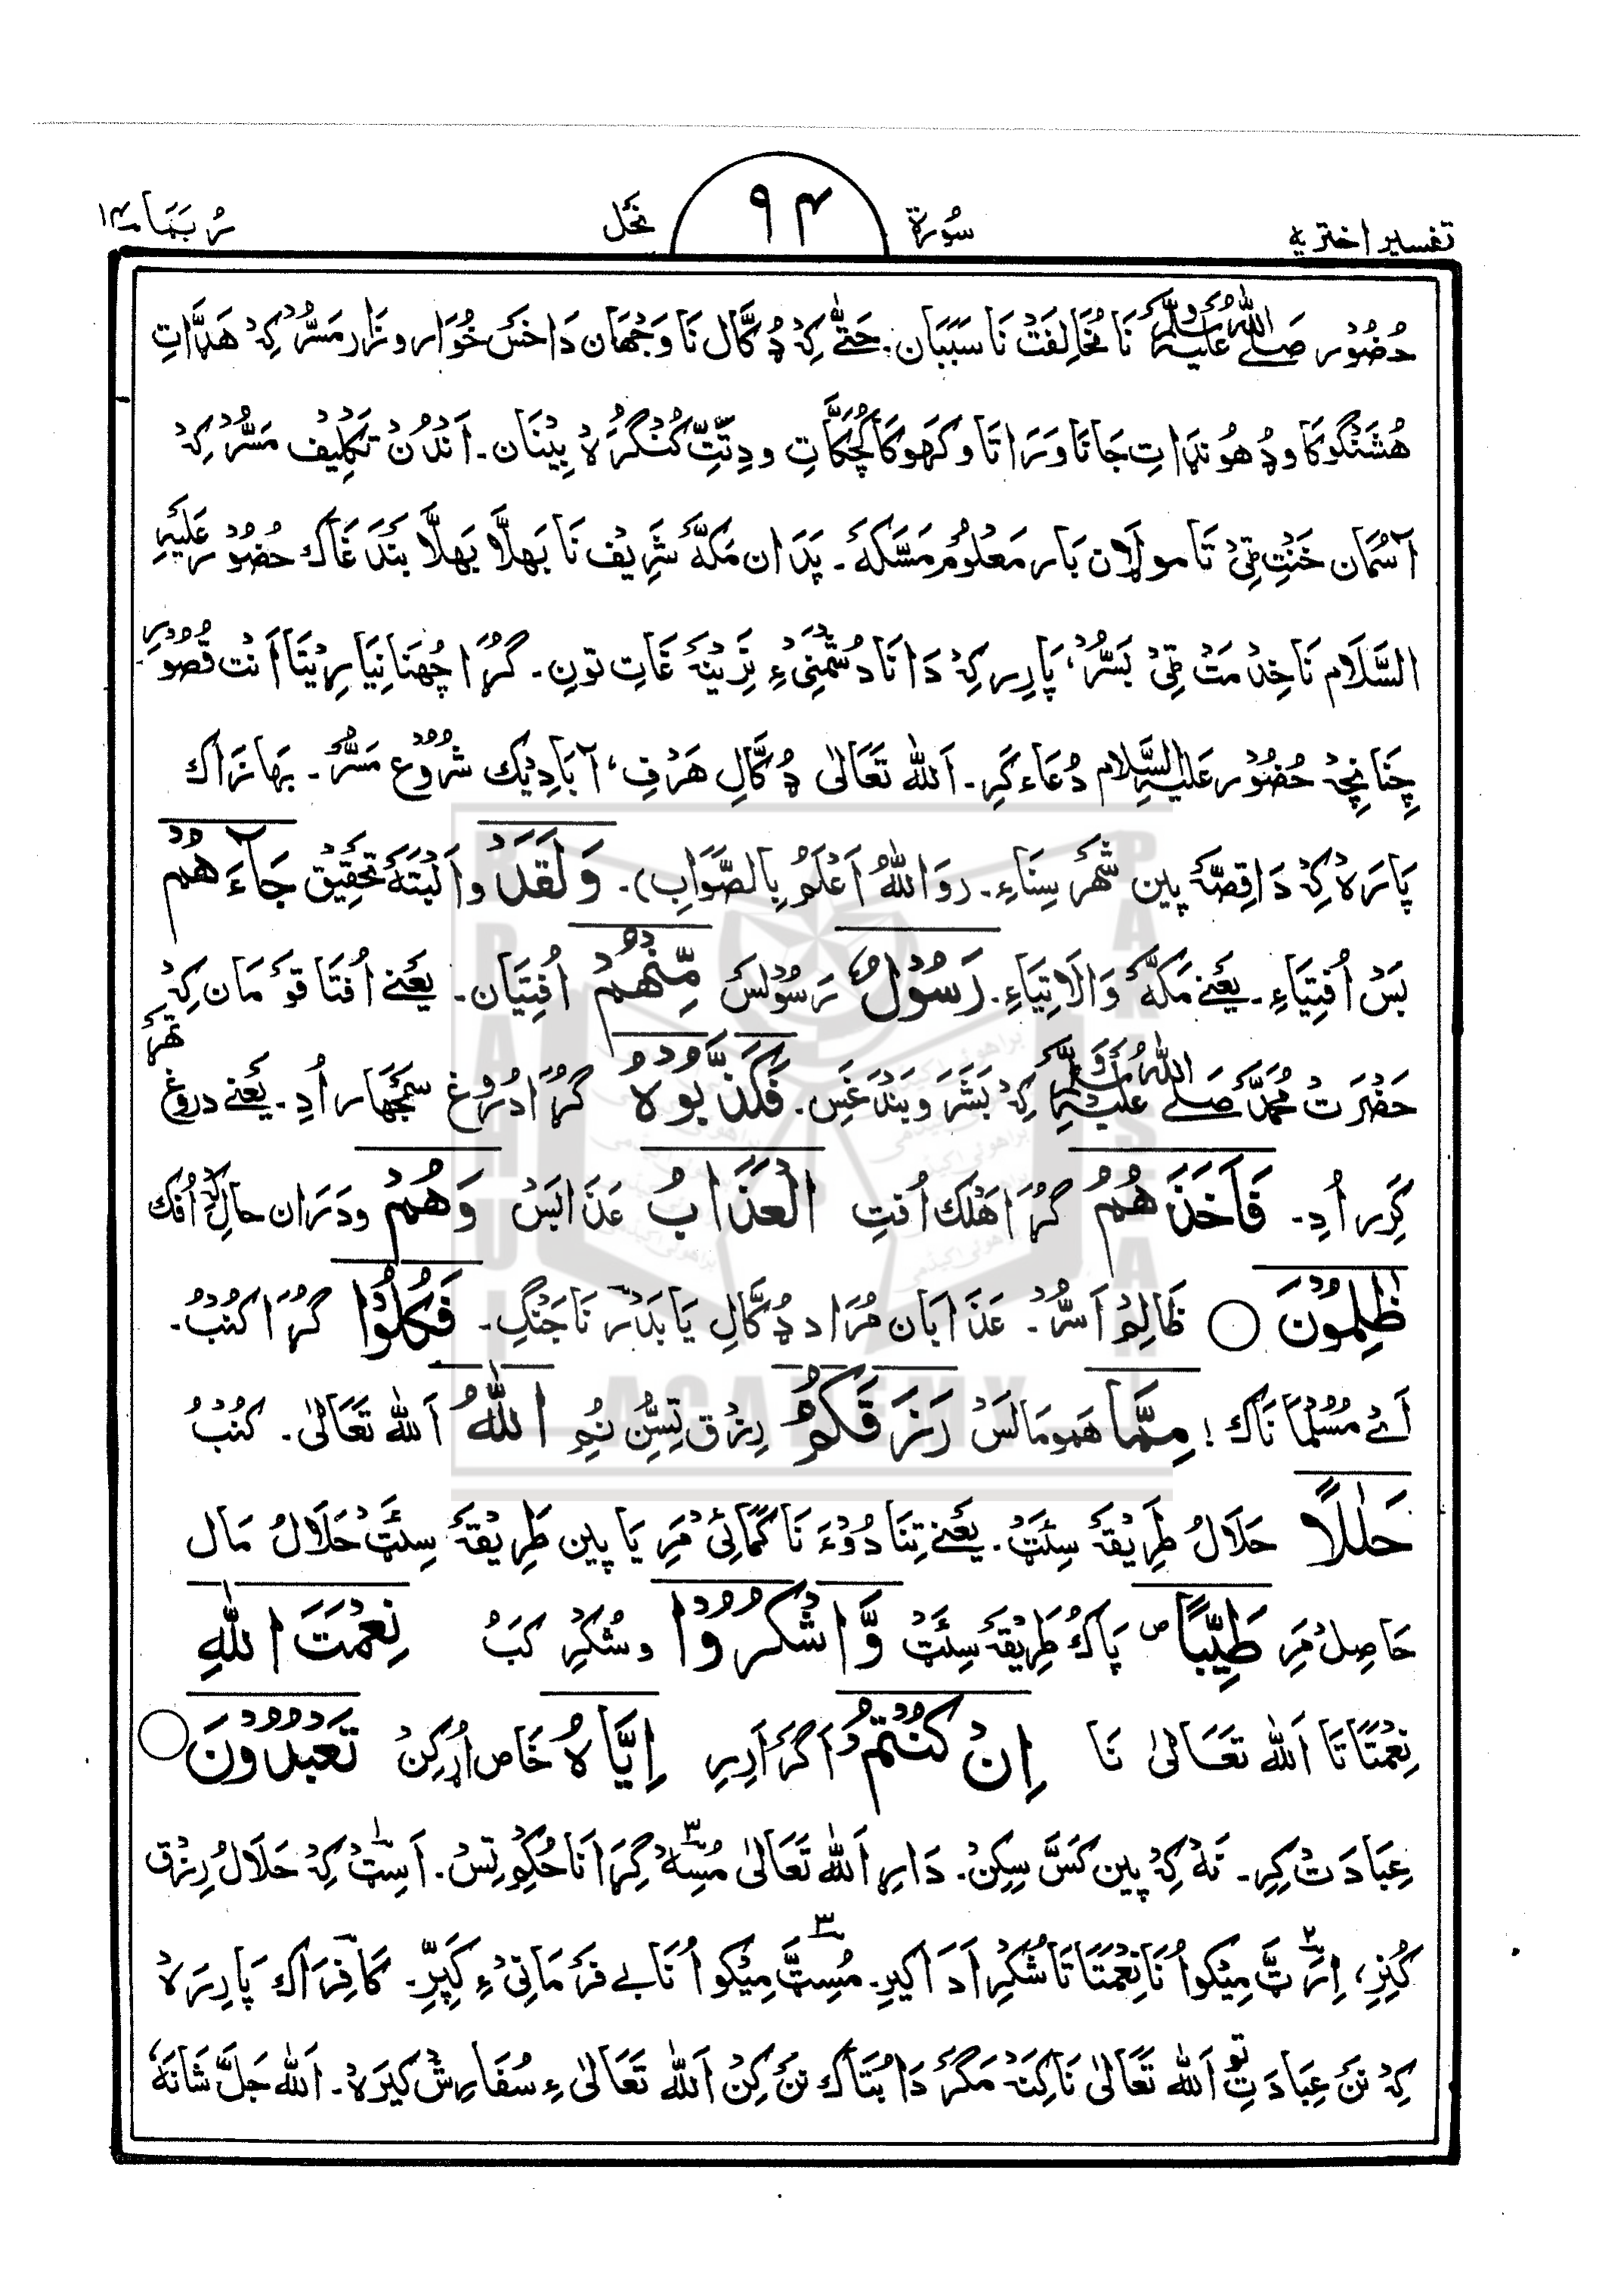 تفسیر اختریه سُورة ۹۴ نَحَل رُبَمَا ۱۴
حُضُوْر صَلے اللهُ عَلَیْہِ وَسَلَّمْ نَا مُخَالِفَتْ نَا سَبَبَان. حَتّٰی کِہْ ڈُکَّال نَا وَجْھَان دَاخَسْ خُوَار و زَار مَسُّرْ کِہْ ھَڈَّاتِ
ھُشَنْگوکَا و ڈھونڈَاتِ جَانَاوَرَاتَا و کَرَھوکَا کُچَکَّاتِ و دِتَّتِ کُنْگُرَہْ بِیْنَان. اَنْدُنْ تَکْلِیْف مَسُّرْ کِہْ
آسْمَان خَنْتِ قِیْ تَا مولان بَار مَعْلُوْم مَسَّکَہْ. پَدَان مَکَّہْ شَرِیْف نَا بَھلَّا بَھلَّا بَنْدَغَاک حُضُوْر عَلَیْہِ
السَّلَام نَا خِدْمَتْ قِیْ بَسُّرْ، پَارِر کِہْ دَانَا دُشْمَنِیْ ءِ نَرِیْنَہْ غَاتِ تونِ. گُڑَا چُھنَا نِیَارِیْتَا اَنْت قُصُوْرِ
چِنَانِچِہْ حُضُوْر عَلَیْہِ السَّلَام دُعَاء کَرِ. اَللہ تَعَالیٰ ڈُکَّالِ ھَرْفِ، آبَادِیْک شُرُوْع مَسُّرْ. بَھَازَاک
پَارَہْ کِہْ دَاقِصَّہْ پِین شَھْرَسِنَاءِ. (وَ اللّٰہُ اَعْلَمُ بِالصَّوَابِ). وَلَقَدْ و اَلْبَتَّہْ تَحْقِیْق جَآءَھُمْ
بَسْ اُفْتِیَاءِ. یَعْنے مَکَّہْ وَالَاتِیَاءِ. رَسُوْلٌ رَسُوْلَسْ مِّنْھُمْ اُفْتِیَان. یَعْنے اُفْتَا قَوْمَان کِہْ
حَضْرَتْ مُحَمَّدْ صَلے اللهُ عَلَیْہِ وَسَلَّمْ کِہْ بَشَرْ وَ بَنْدَغَسِ. فَکَذَّبُوْہُ گُڑَا دُرُوْغ سَمْجَھَار اُدِ. یَعْنے دروغ
کَرِر اُدِ. فَاَخَذَھُمُ گُڑَا ھَلْک اُفْتِ الْعَذَابُ عَذَابَسْ وَھُمْ و دَرَان حَالِ کِہْ اُفک
ظٰلِمُوْنَ ○ ظَالِمْ اَسُّرْ. عَذَابَان مُرَاد ڈُکَّالِ یَا بَدْر نَا جَنْگِ. فَکُلُوْا گُڑَا کُنْبُ.
اَےْ مُسْلْمَانَاک! مِمَّا ھَمومَالَسْ رَزَقَکُمُ رِزْق تِسُّنْ نُمِ اللّٰہُ اَللہ تَعَالیٰ. کُنْبُ
حَلٰلًا حَلَالُ طَرِیْقَہْ سِٹَتْ. یَعْنے تِنَا دُوْءَ نَا کَمَائِیْ مَرِ یَا پِین طَرِیْقَہْ سِٹَتْ حَلَالُ مَال
حَاصِلْ مَرِ طَیِّبًا ص پَاکُ طَرِیْقَہْ سِٹَتْ وَّاشْکُرُوْا و شُکُرِ کَبُ نِعْمَتَ اللّٰہِ
نِعْمَتَاتَا اَللہ تَعَالیٰ نَا اِنْ کُنْتُمْ اَگَرْ اَرِیرِ اِیَّاہُ خَاص اُڑکِنْ تَعْبُدُوْنَ ○
عِبَادَتْ کِرِ. نَہْ کِہْ پِین کَسَّ سِکِنْ. دَارِ اَللہ تَعَالیٰ مُسِہْ ۳ گِڑَانَا حُکِمْ تِسْ. اَسِٹْ ۱ کِہْ حَلَالُ رِزْق
کُنِرِ، اِرَٹَ ۲ مِیْکو اُنَا نِعْمَتَاتَا شُکُرِ اَدَا کِیرِ. مُسِٹَّ ۳ مِیْکو اُنَا بے فَرْمَانِیْ ءِ کِپَرِّ. کَافِرَاک پَارِرَہْ
کِہْ نَنْ عِبَادَتِ تو اَللہ تَعَالیٰ نَا کِنَہْ مَگَرْ دَا بُتَّاک نَنْ کِنْ اَللہ تَعَالیٰ ءِ سُفَارِشْ کِیرَہْ. اَللہ جَلَّ شَانَہٗ
BRAHUI ACADEMY PAKISTAN